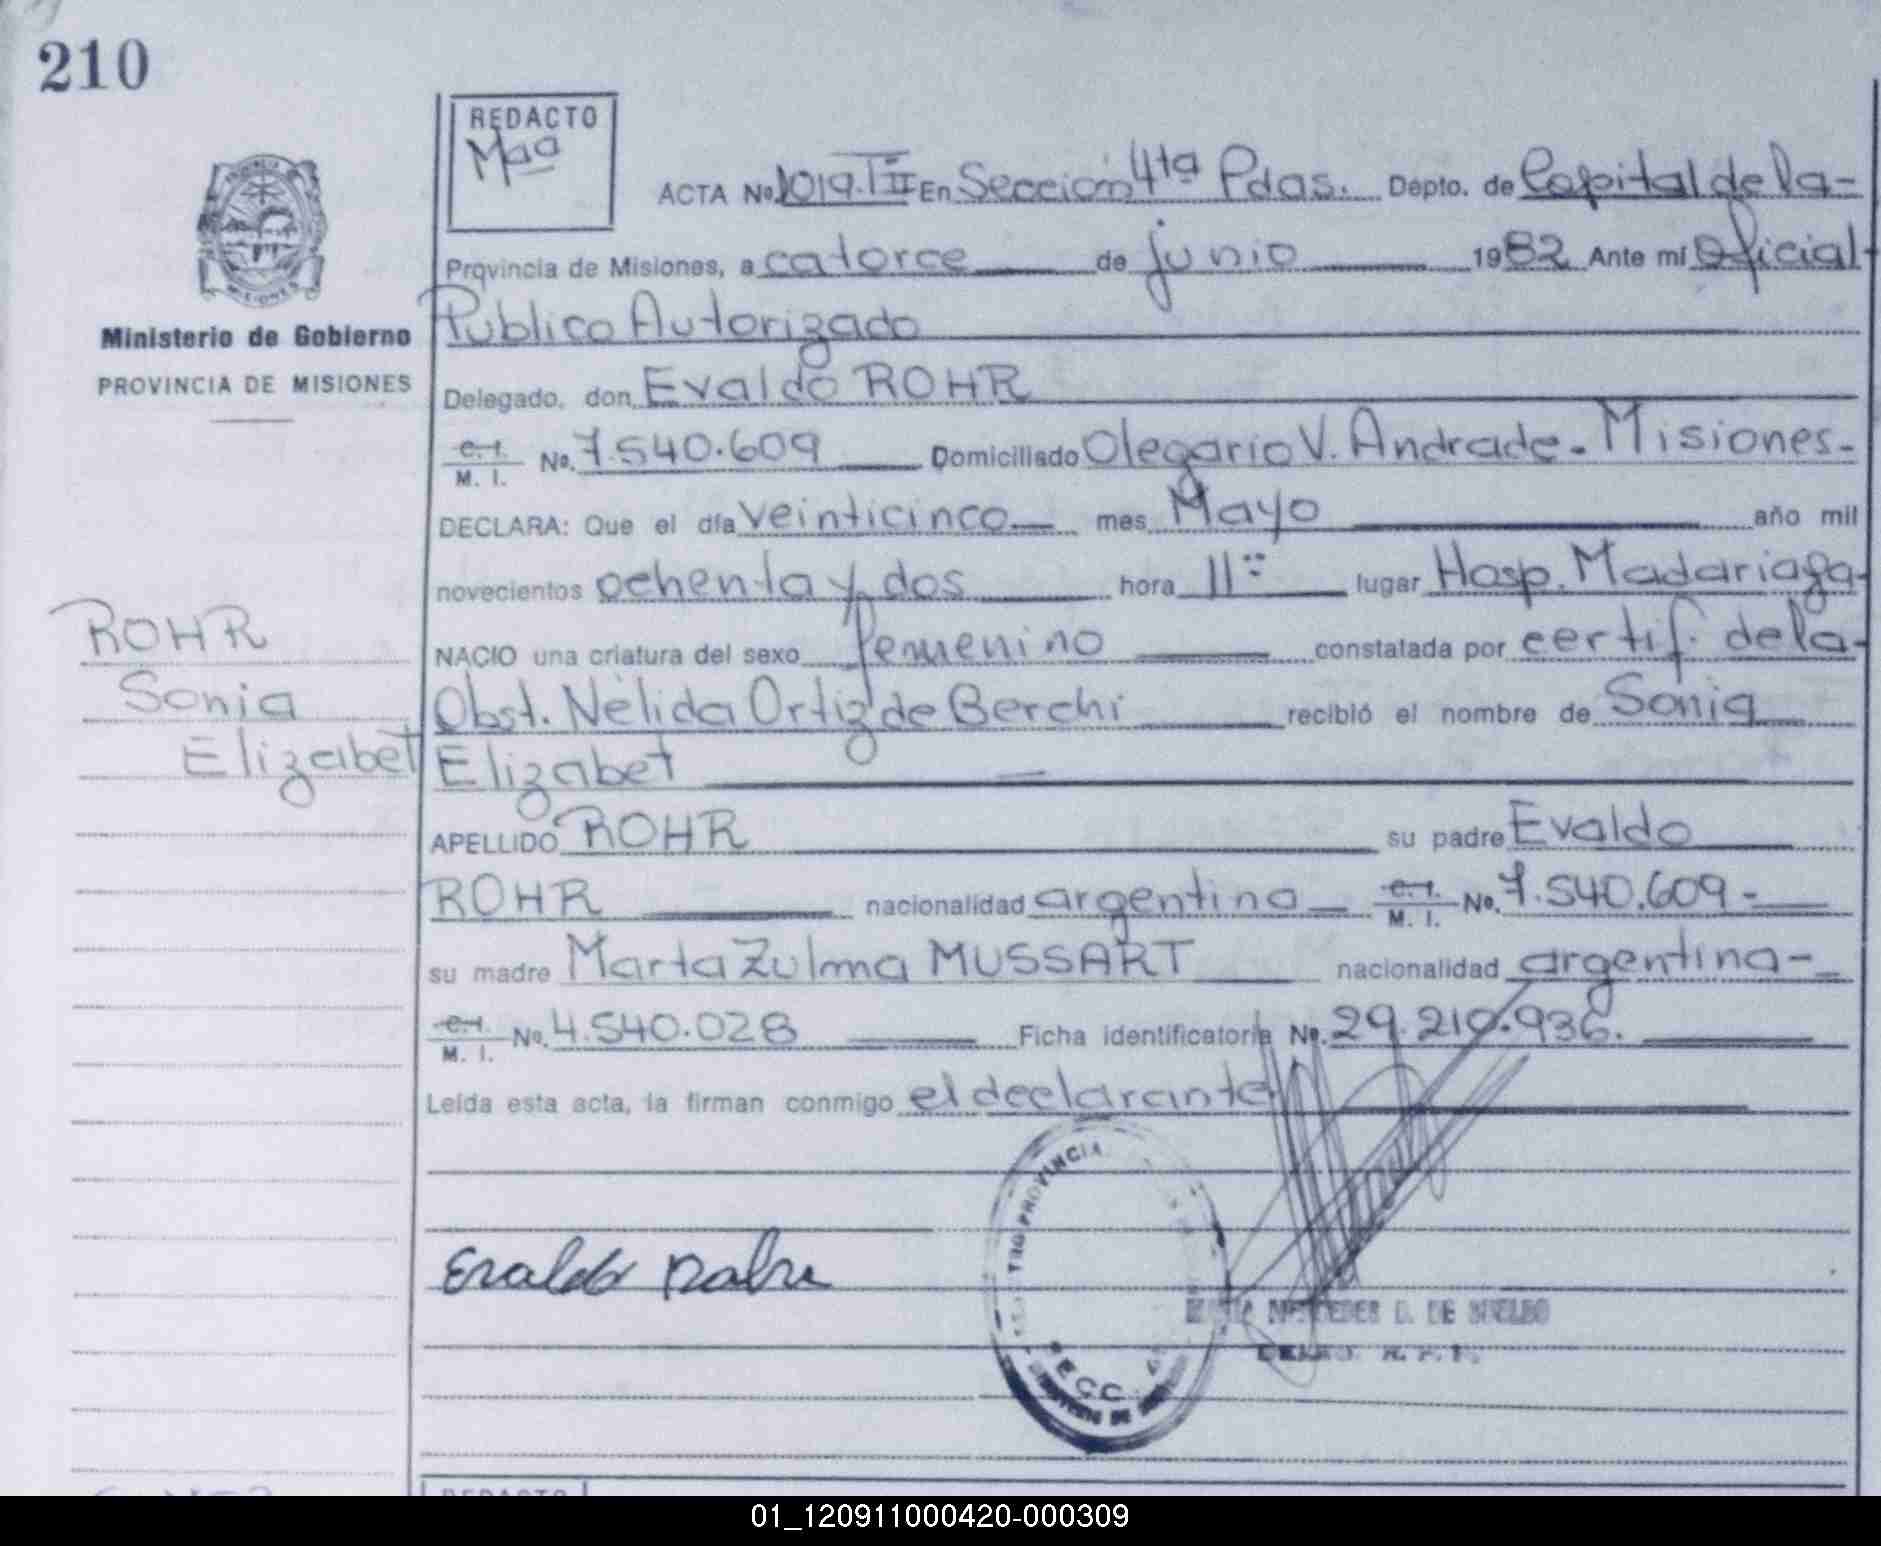 210
REDACTO
Maa
ACTA No. 1019.TII En Sección 4ta Pdas. Depto. de Capital de la-
Provincia de Misiones, a catorce de junio 1982 Ante mí Oficial
Publico Autorizado
Ministerio de Gobierno
PROVINCIA DE MISIONES
Delegado, don Evaldo ROHR
C.I. M. I. No. 7.540.609 Domiciliado Olegario V. Andrade. Misiones-
DECLARA: Que el día veinticinco mes Mayo año mil
novecientos ochenta y dos hora 11 lugar Hosp. Madariaga-
NACIO una criatura del sexo femenino constatada por certif. de la-
Obst. Nélida Ortiz de Berchi recibió el nombre de Sonia
Elizabet
ROHR
Sonia
Elizabet
APELLIDO ROHR su padre Evaldo
ROHR nacionalidad argentina C.I. M. I. No. 7.540.609-
su madre Marta Zulma MUSSART nacionalidad argentina-
C.I. M. I. No. 4.540.028 Ficha identificatoria No. 29.210.936.
Leída esta acta, la firman conmigo el declarante
PROVINCIA
SECC.
Evaldo
MERCEDES D. DE
REDACTO
01_120911000420-000309